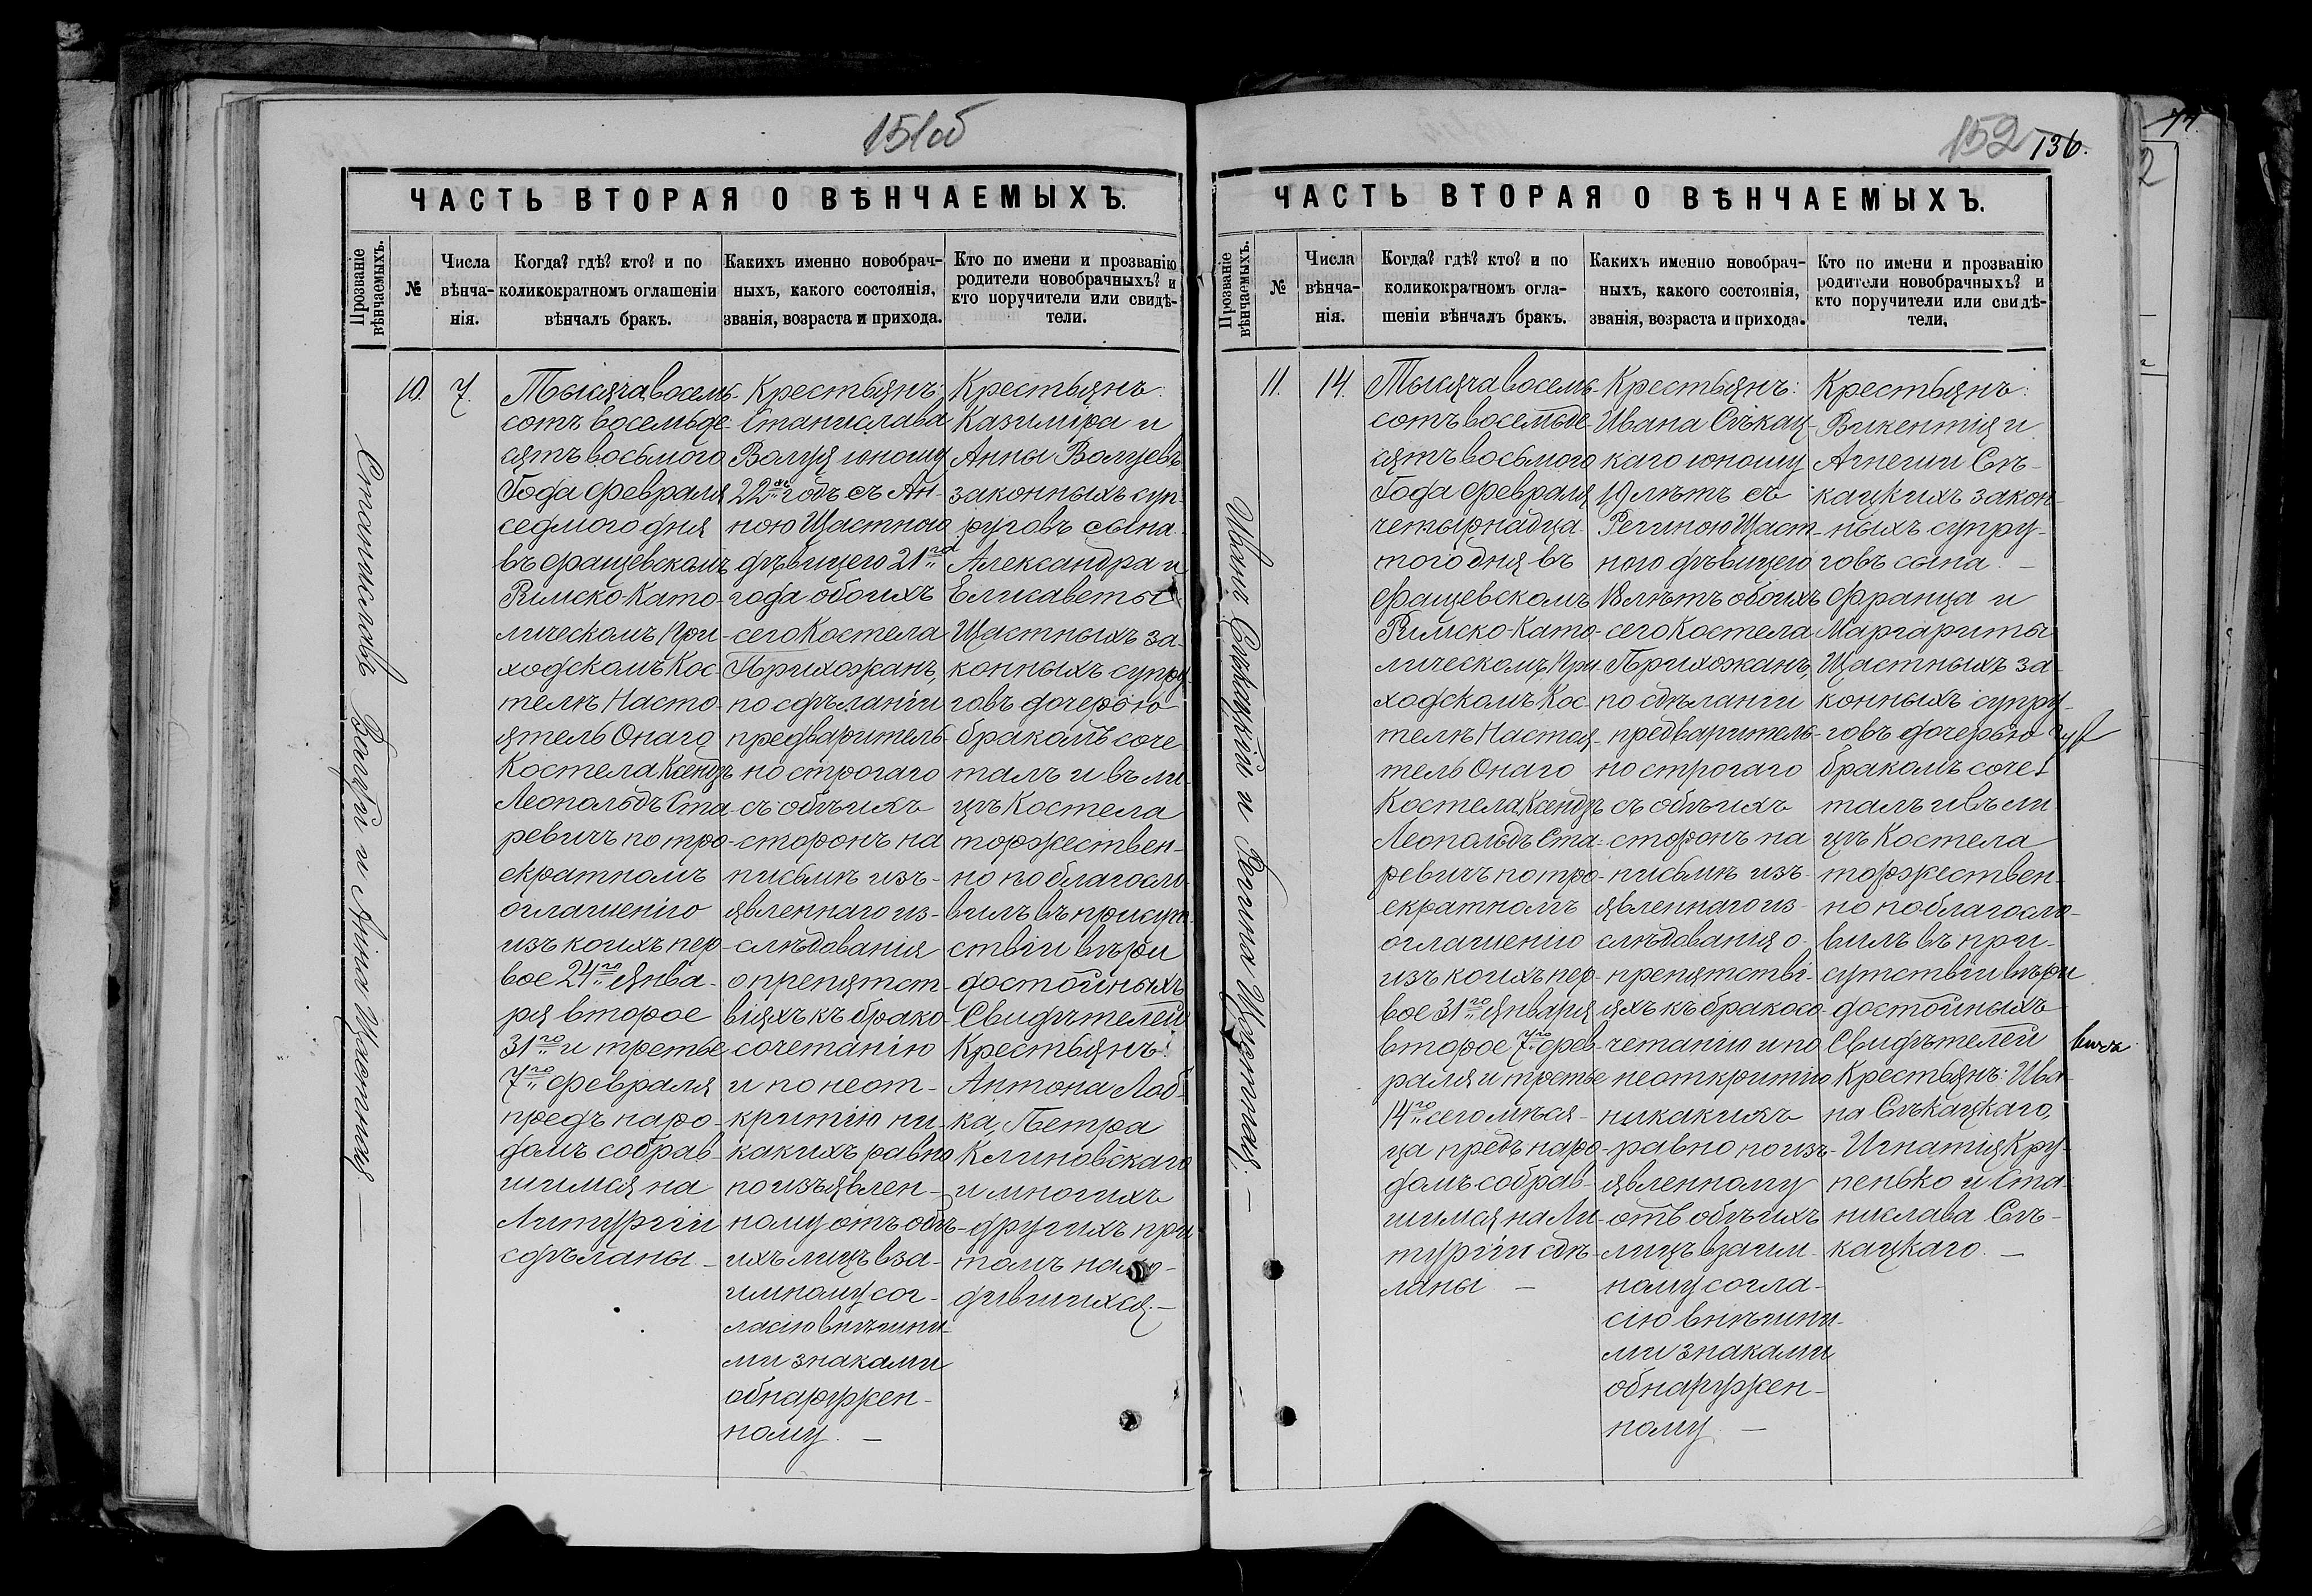 151об
ЧАСТЬ ВТОРАЯ О ВѢНЧАЕМЫХЪ.
Прозваніе
вѣнчаемыхъ.
№
Числа
вѣнча-
нія.
Когда? гдѣ? кто? и по
коликократномъ оглашеніи
вѣнчалъ бракъ.
Какихъ именно новобрач-
ныхъ, какого состоянія,
званія, возраста и прихода.
Кто по имени и прозванію
родители новобрачныхъ? и
кто поручители или свидѣ-
тели.
Станиславъ Волуй и Анна Щастная. —
10.
7.
Тысяча восемь-
сотъ восемьде-
сятъ восьмого
Года Февраля
седмого дня
въ Фащевскомъ
Римско-Като-
лическомъ При-
ходскомъ Кос-
телѣ Насто-
ятель Онаго
Костела Ксендзъ
Леопольдъ Ста-
ревичъ по тро-
екратномъ
оглашенію
изъ коихъ пер-
вое 24го Янва-
ря второе
31го и третье
7го Февраля
предъ наро-
домъ собрав-
шимся на
Литургіи
сдѣланы. —
Крестьянъ:
Станислава
Волуя юношу
22хъ годъ съ Ан-
ною Щастною
дѣвицею 21го
года обоихъ
сего Костела
Прихожанъ,
по сдѣланіи
предваритель-
но строгаго
съ обѣихъ
сторонъ на
письмѣ изъ-
явленнаго из-
слѣдованія
о препятст-
віяхъ къ брако-
сочетанію
и по неот-
критію ни-
какихъ равно
по изъявлен-
ному отъ обѣ-
ихъ лицъ вза-
имному сог-
ласію внѣшни-
ми знаками
обнаружен-
ному. —
Крестьянъ:
Казиміра и
Анны Волуевъ
законныхъ суп-
руговъ сына.
Александра и
Елисаветы
Щастныхъ за-
конныхъ супру-
говъ дочерью
бракомъ соче
талъ и въ ли-
цѣ Костела
торжествен-
но поблагосло-
вилъ въ присут-
ствіи вѣри
достойныхъ
Свидѣтелей
Крестьянъ:
Антона Лаб-
ка, Петра
Клиновскаго
и многихъ
другихъ при
томъ нахо-
дившихся. —
152 136.
ЧАСТЬ ВТОРАЯ О ВѢНЧАЕМЫХЪ.
Прозваніе
вѣнчаемыхъ.
№
Числа
вѣнча-
нія.
Когда? гдѣ? кто? и по
коликократномъ огла-
шеніи вѣнчалъ бракъ.
Какихъ именно новобрач-
ныхъ, какого состоянія,
званія, возраста и прихода.
Кто по имени и прозванію
родители новобрачныхъ? и
кто поручители или свидѣ-
тели.
Иванъ Сѣкацкій и Регина Щастная. —
11.
14.
Тысяча восемь-
сотъ восемьде-
сятъ восьмого
Года Февраля
четырнадца-
того дня въ
Фащевскомъ
Римско-Като-
лическомъ При-
ходскомъ Кос-
телѣ Настоя-
тель Онаго
Костела Ксендзъ
Леопольдъ Ста-
ревичъ по тро-
екратномъ
оглашенію
изъ коихъ пер-
вое 31го Января
второе 7го Фев-
раля и третье
14го сего мѣся-
ца предъ наро-
домъ собрав-
шимся на Ли-
тургіи сдѣ-
ланы —
Крестьянъ:
Ивана Сѣкац-
каго юношу
19 лѣтъ съ
Региною Щаст-
ною дѣвицею
18 лѣтъ обоихъ
сего Костела
Прихожанъ,
по сдѣланіи
предваритель-
но строгаго
съ обѣихъ
сторонъ на
письмѣ изъ-
явленнаго из-
слѣдованія о
препятстві-
яхъ къ бракосо-
четанію и по
неоткритію
никакихъ
равно по изъ-
явленному
отъ обѣихъ
лицъ взаим-
ному согла-
сію внѣшни-
ми знаками
обнаружен-
ному. —
Крестьянъ:
Викентія и
Агнеши Сѣ-
кацкихъ закон-
ныхъ супру-
говъ сына —
Франца и
Маргариты
Щастныхъ за-
конныхъ супру-
говъ дочерью
бракомъ соче
талъ и въ ли
цѣ Костела
торжествен-
но поблагосло-
вилъ въ при-
сутствіи вѣри
достойныхъ
Свидѣтелей
Крестьянъ: Ива-
на Сѣкацкаго,
Игнатія Кру-
пенько и Ста-
нислава Сѣ-
кацкаго. —